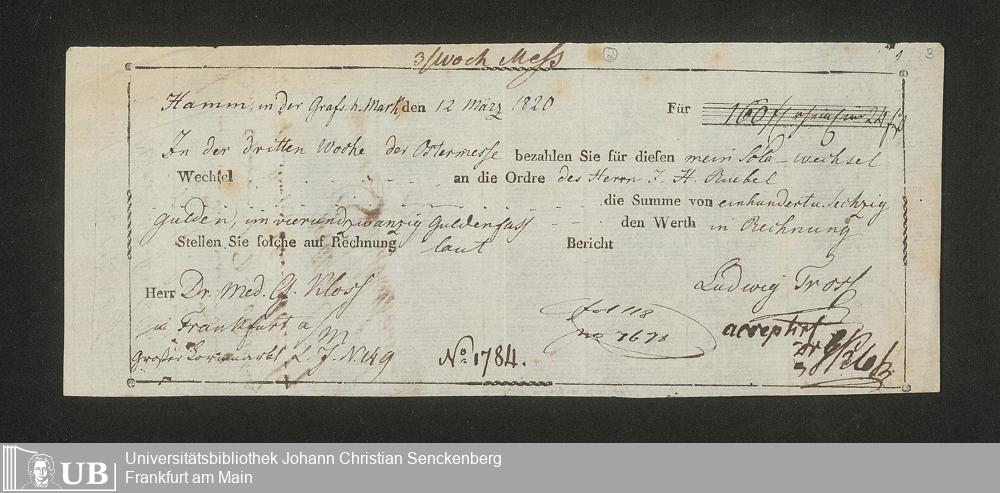 3/Woch Mess
2
3
Hamm, in der Grafs. h. Mark den 12 März 1820 Für 160 fl rhein im 24 fl
In der dritten Woche der Ostermesse bezahlen Sie für diesen mein Sola-Wechsel
Wechsel an die Ordre des Herrn J. H. Ruebel
die Summe von einhundert u. sechzig
Gulden, im vierundzwanzig Guldenfuss den Werth in Rechnung
Stellen Sie solche auf Rechnung laut Bericht
Herr Dr. Med. G. Kloss Ludwig Tross
in Frankfurt a/M
Großer Kornmarkt L. J. N. 49
fol 118
no 1671
acceptirt
Dr G Kloß
No. 1784.
UB Universitätsbibliothek Johann Christian Senckenberg
Frankfurt am Main